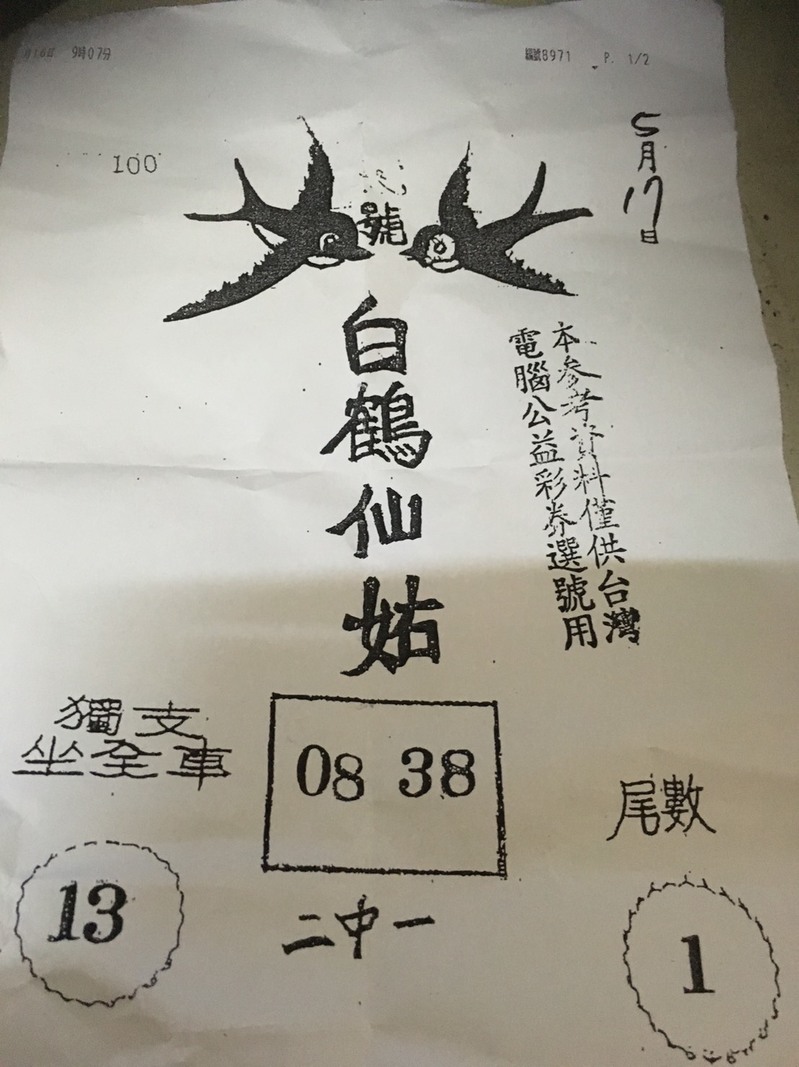 9時07分
編號8971 P. 1/2
100
5月17日
號
白鶴仙姑
本參考資料僅供台灣
電腦公益彩券選號用
獨支
坐全車
08 38
尾數
13
二中一
1